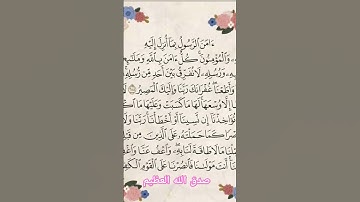 ءَامَنَ ٱلرَّسُولُ بِمَآ أُنزِلَ إِلَيْهِ
وَٱلْمُؤْمِنُونَ كُلٌّ ءَامَنَ بِٱللَّهِ وَمَلَٰٓئِكَ
وَرُسُلِهِۦ لَا نُفَرِّقُ بَيْنَ أَحَدٍ مِّن رُّسُلِهِ
وَأَطَعْنَا غُفْرَانَكَ رَبَّنَا وَإِلَيْكَ ٱلْمَصِيرُ
إِلَّا وُسْعَهَا لَهَا مَا كَسَبَتْ وَعَلَيْهَا مَا ٱكْ
تُؤَاخِذْنَآ إِن نَّسِينَآ أَوْ أَخْطَأْنَا رَبَّنَا وَلَا
صْرًا كَمَا حَمَلْتَهُۥ عَلَى ٱلَّذِينَ مِن قَبْلِ
لْنَا مَا لَا طَاقَةَ لَنَا بِهِۦ وَٱعْفُ عَنَّا وَٱغْفِ
أَنتَ مَوْلَىٰنَا فَٱنصُرْنَا عَلَى ٱلْقَوْمِ ٱلْكَٰفِ
صدق الله العظيم